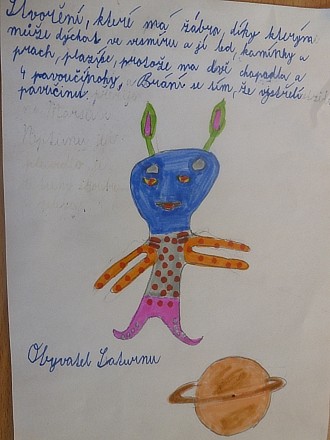 Stvoření, které má žábra, díky kterým
může dýchat ve vesmíru a jí led, kamínky a
prach, plazíše, protože má dvě chapadla a
4 pavoučínohy. Brání se tím, že vystřelí
pavučinu.
Obyvatel Saturnu